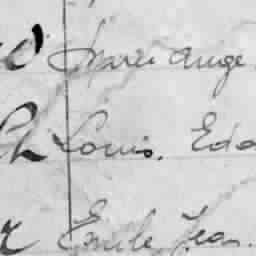 Marie Ange
Ch Louis. Edo
r Emile Jean.